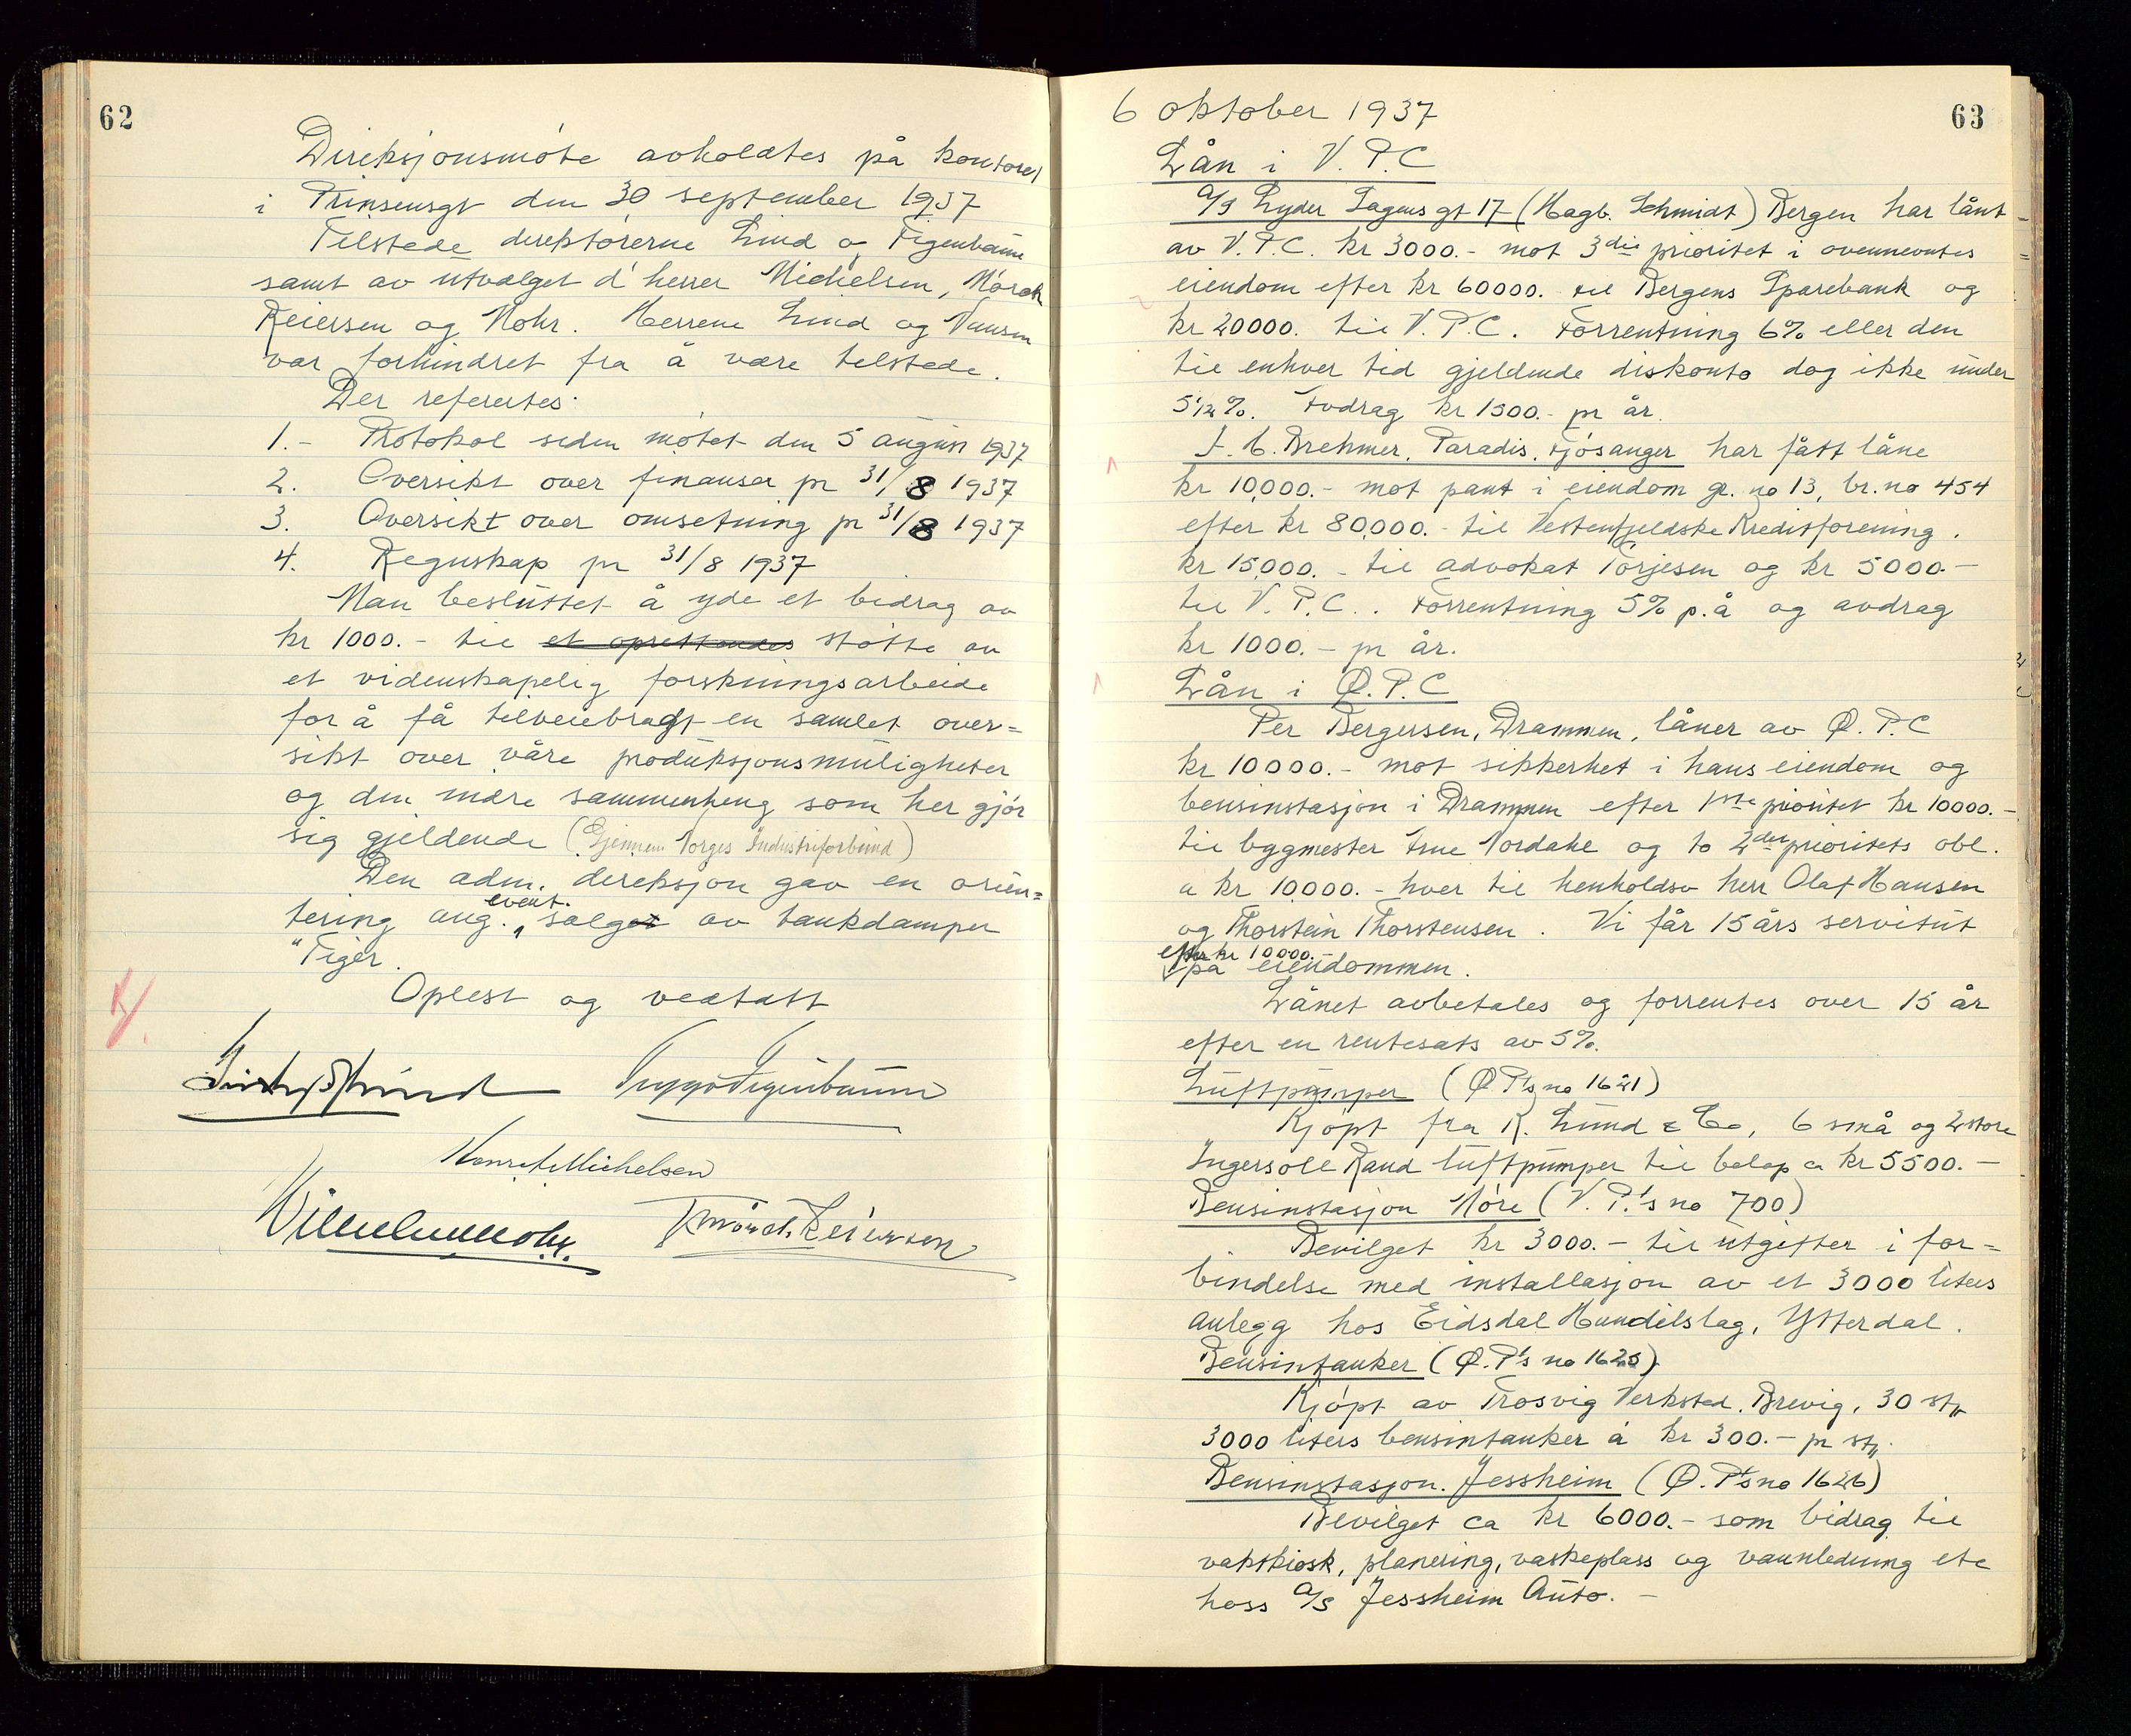 62
Direksjonsmöte avholdtes på kontoret
i Prinsensgt den 30 september 1937
Tilstede direktörerne Lind og Figenbaum
samt av utvalget d'herrer Michelsen, Mörch
Reiersen og Mohr. Herrene Lind og Nansen
var forhindret fra å være tilstede.
Der refertes:
1.- Protokol siden mötet den 5 august 1937
2. Oversikt over finanser pr 31/8 1937
3. Oversikt over omsetning pr 31/8 1937
4. Regnskap pr 31/8 1937
Man besluttet å yde et bidrag av
kr 1000.- til et oprettendes stötte av
et videnskapelig forskningsarbeide
for å få tilveiebragt en samlet over=
sikt over våre produksjonsmuligheter
og den indre sammenheng som her gjör
sig gjeldende (Gjennem Norges Industriforbund)
Den adm. direksjon gav en orien=
tering ang. event. salget av tankdamper
"Tiger.
Oplest og vedtatt
Konr. Michelsen
Wilhelm Mohr.
K Mörch Reiersen
6 oktober 1937
63
Lån i V.P.C
A/S Lyder Sagens gt 17 (Hagb. Schmidt) Bergen har lånt
av V.P.C. kr 3000.- mot 3die prioritet i ovennevntes
eiendom efter kr 60000.- til Bergens Sparebank og
kr 20000. til V.P.C. Forrentning 6% eller den
til enhver tid gjeldende diskonto dog ikke under
5 1/2%. Avdrag kr 1500.- pr år.
F. C. Brehmer, Paradis, Fjösanger har fått låne
kr 10,000.- mot pant i eiendom gr. no 13, br. no 454
efter kr 80,000.- til Vestenfjeldske Kreditforening.
kr 15,000.- til advokat Torjesen og kr 5000.-
til V.P.C.. Forrentning 5% p.å og avdrag
kr 1000.- pr år.
Lån i Ø.P.C
Per Bergersen, Drammen, låner av Ø.P.C
kr 10000.- mot sikkerhet i hans eiendom og
bensinstasjon i Drammen efter 1ste prioritet kr 10000.-
til byggmester Arne Nordahl og to 2den prioritets obl.
a kr 10,000.- hver til henholdsv herr Olaf Hansen
og Thorstein Thorstensen. Vi får 15 års servitut
efter kr 10000.-
på eiendommen.
Lånet avbetales og forrentes over 15 år
efter en rentesats av 5%.
Luftpumper (Ø P's no 1621)
Kjöpt fra K. Lund & Co, 6 små og 2 store
Ingersoll Rand luftpumper til belöp ca kr 5500.-
Bensinstasjon Möre (V. P.'s no 700)
Bevilget kr 3000.- til utgifter i for=
bindelse med installasjon av et 3000 liters
anlegg hos Eidsdal Handelslag, Ytterdal.
Bensintanker (Ø. P's no 1625)
Kjöpt av Trosvig Verksted, Brevig, 30 st,,
3000 liters bensintanker á kr 300.- pr st,,.
Bensinstasjon. Jessheim (Ø. P's no 1626)
Bevilget ca kr 6000.- som bidrag til
vaktkiosk, planering, vaskeplass og vannledning etc
hoss A/S Jessheim Auto.-